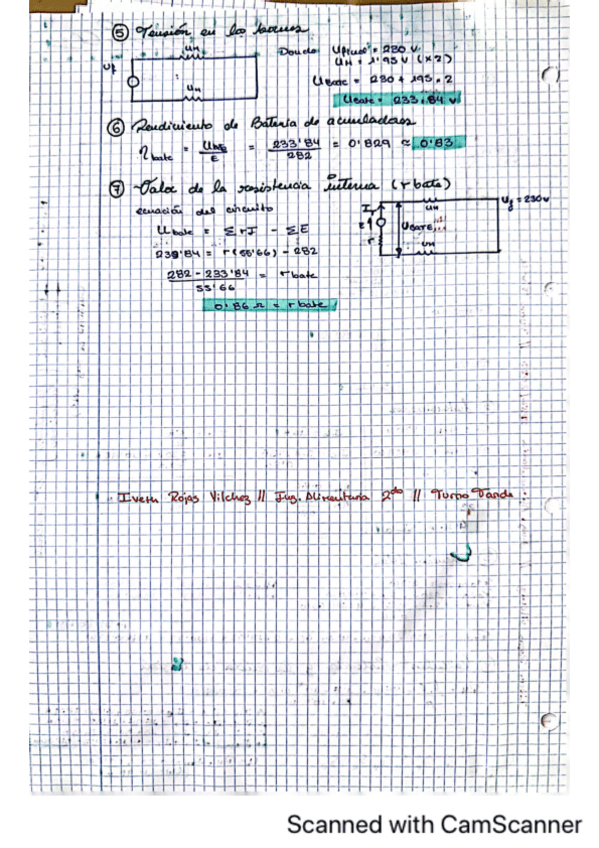 ⑤ Tensión en los bornes
Uf
UH
UH
Donde Ufinal = 230 V.
UH = 1'95 V (x2)
Ubate = 230 + 1'95.2
Ubate = 233'84 V
⑥ Rendimiento de Batería de acumuladores
η bate = = 233'84 / 282 = 0'829 ≈ 0'83
⑦ Valor de la resistencia interna (r bate)
ecuación del circuito
U bate = ΣrI - ΣE
= r(55'66) - 282
282 - 233'84 / 55'66 = r bate
0'86 Ω = r bate
I
E
r
UH
UBATE
UH
Uf = 230 V
Rojas Vilchez // Ing. Alimentaria 2do // Turno Tarde
Scanned with CamScanner